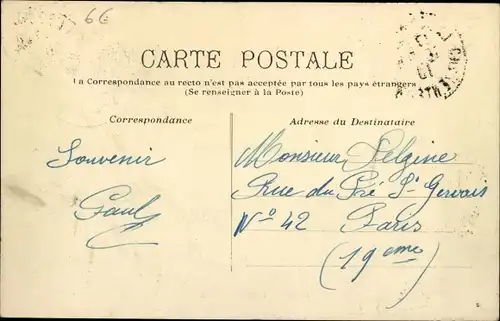 66
CARTE POSTALE
La Correspondance au recto n'est pas acceptée par tous les pays étrangers
(Se renseigner à la Poste)
Correspondance
Adresse du Destinataire
Souvenir
Paul
Monsieur Pelgine
Rue du Pré St Gervais
No 42 Paris
(19eme)